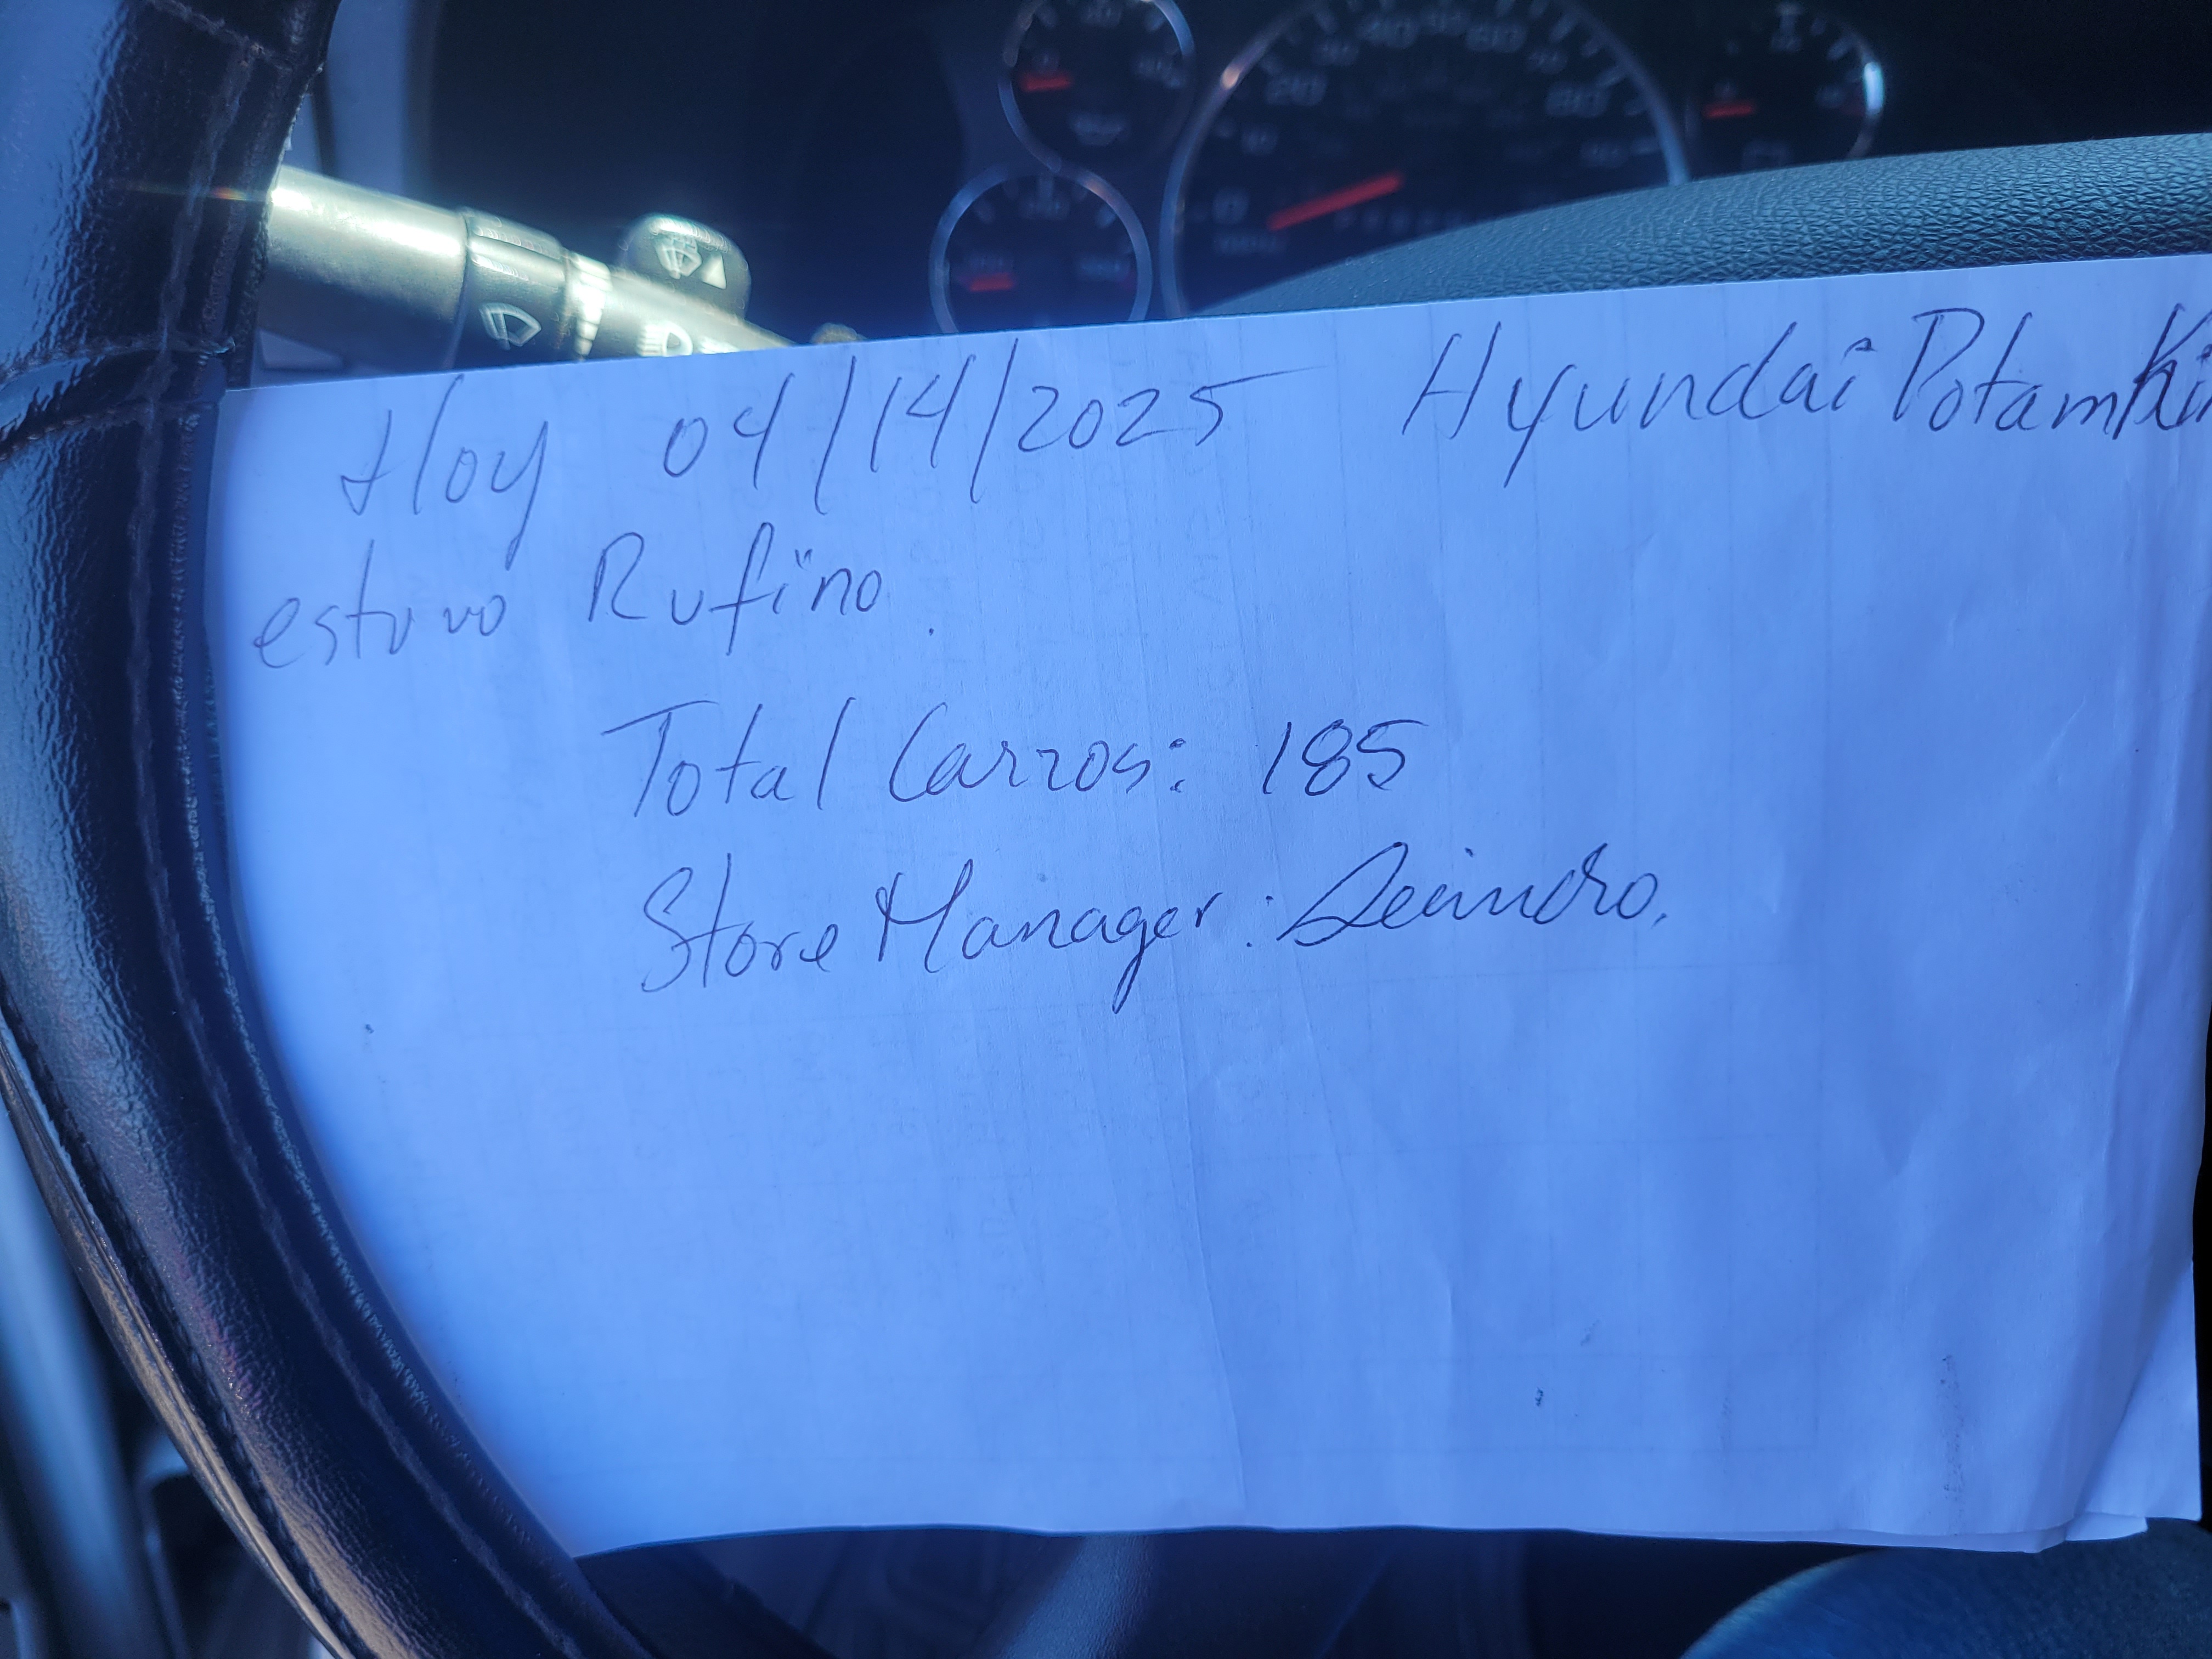 20 40 60 80
Hoy 04/14/2025 Hyundai Potamki
estuvo Rufino.
Total Carros: 185
Store Manager: Leandro.